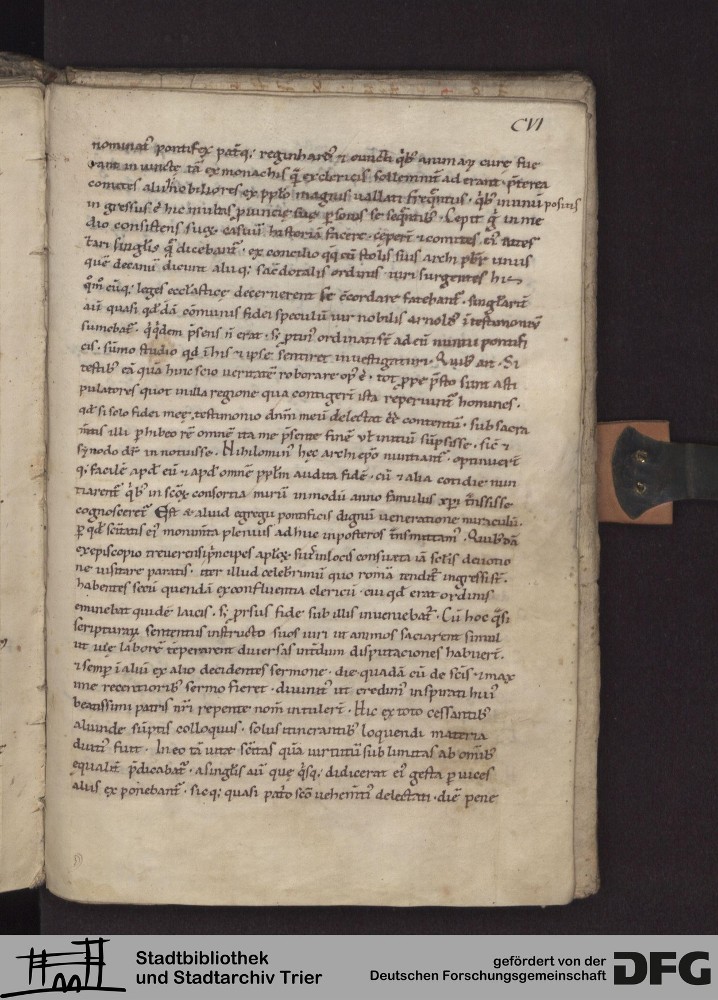 CVI
nominat' pontifex patq; reginhard' & cuncti q'b; animarum cure fue
rant iniuncte tā ex monachis q̄ ex clericis sollemnit' ad erant. p̄terea
comites aliiq; nobiliores ex pplo magnis uallati frequentiis. q'b; in unū positis
in gressus ē hic multis puincie sue p sonis se seq̄ntib;. Cepit in me
dio consistens suum historiā facere. ceper & comites ei'
tari singlis q̄ dicebant. ex concilio qq; cū stolis suis archi pbr unus
quē decanū dicunt aliiq; sacdotalis ordinis uiri surgentes his
qm eūq; leges ecclastice decernerent se ccordare fatebant'. singlarit'
aut quasi qddā cōmunis fidei speculū uir nobilis arnold' ī testimoniū
sumebat'. qqdem p̄sens n̄ erat. s; ptin' ordinatis sr̄ ad eū nuntii pontifi
cis. sūmo studio qd ī his & ipse sentiret inuestigaturi. Quib; ait. Si
testib; eā quā hinc scio ueritatē roborare op' ē. tot ppe p̄sto sunt asti
pulatores quot in illa regione qua contiger ista reperiunt' homines.
qd si solo fidei meę testimonio dnm meū delectat ēē contentū. sub sacra
mti illi phibeo rē omnē ita me p̄sente finē ul' initiū sūpsisse. sic &
synodo dr̄ innotuisse. Nihilomin' hec archi epō nuntiant'. optinuert
q; facile apd eū & apd omnē pplm audita fidē. cū & alia cotidie nun
tiarent' q'b; in scōr consortia mirū inmodū anno famulus xpi trnsisse
cognosceret'. Est & aliud egregii pontificis dignū ueneratione miraculū.
p qd scitatis ei' monimta plenius adhuc in posteros trnsmittam'. Quib;dā
ex episcopio treuerensi principes aplicę sūt in locis consueta iā solis deuotio
ne uisitare paratis. iter illud celebrimū quo romā tendit' ingressi st̄.
habentes secū quendā ex confluentia clericū. cui qd erat ordinis
eminebat quidē laicis. s; prsus fide sub illis inueniebat'. Cū hoc q̄si
scripturarum sententiis instructo suos uiri ut animos saciarent simul
ut uię laborē tēperarent diuersas intdum disputaciones habuert.
& semp ī aliū ex alio decidentes sermone. die quadā cū de scis & max
ime recentiorib; sermo fieret. diuinit' ut credim' inspirati hui'
beatissimi patris nr̄i repente nom intulert. Hic ex toto cessantib;
aliunde sūptis colloquiis. solus itinerantib; loquendi materia
duti' fuit. In eo tā uitae scitas quā uirtutū sublimitas ab omib;
equalit' p̄dicabat'. a singlis aut que qsq; didicerat ei' gesta p uices
aliis exponebant'. sicq; quasi pato scō uehemti' delectati. diē pene
Stadtbibliothek
und Stadtarchiv Trier
gefördert von der
Deutschen Forschungsgemeinschaft
DFG